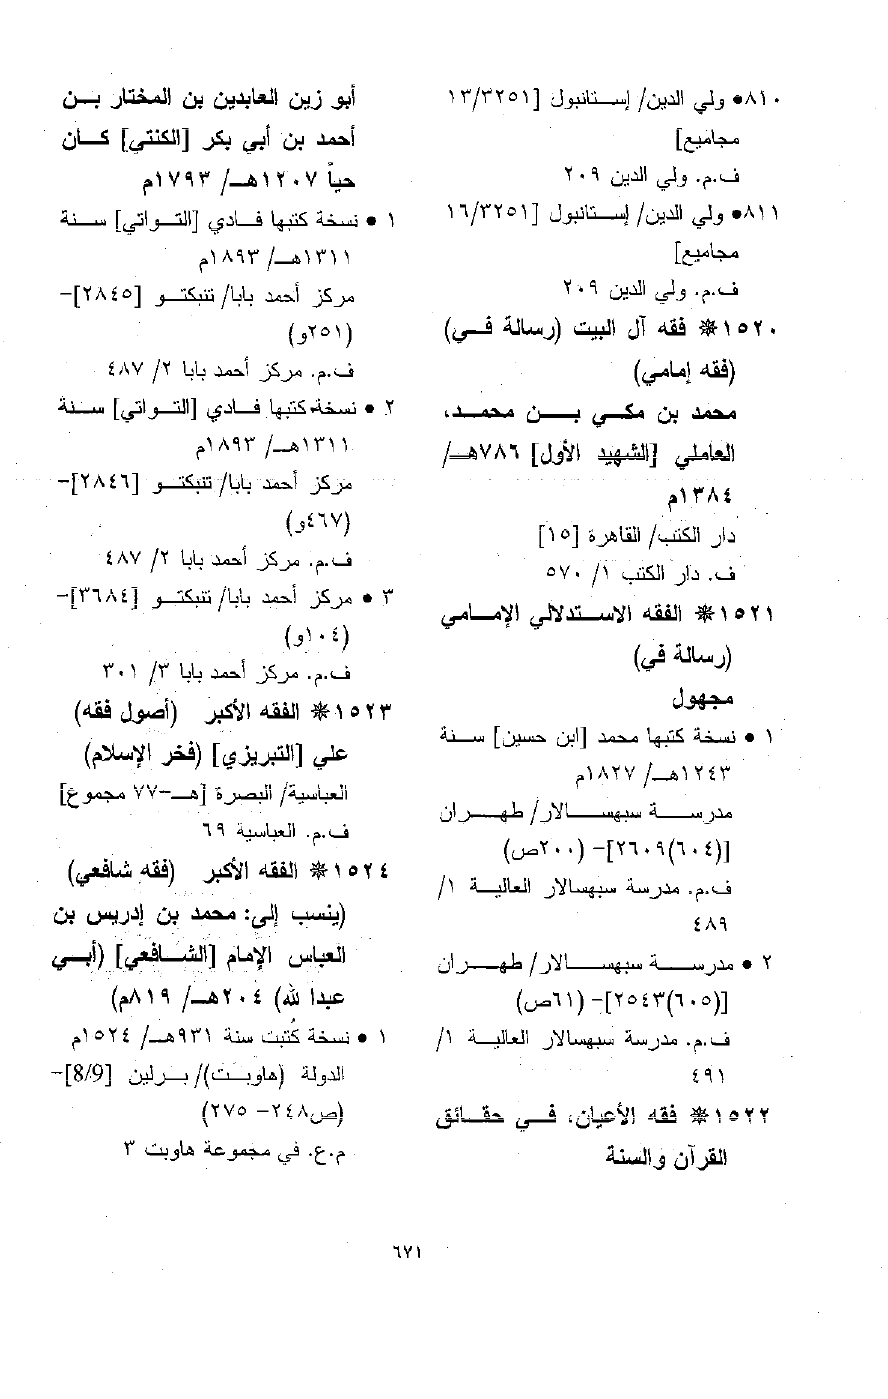 ٨١٠● ولي الدين/ إستانبول [١٣/٣٢٥١
مجاميع]
ف.م. ولي الدين ٢٠٩
٨١١● ولي الدين/ إستانبول [١٦/٣٢٥١
مجاميع]
ف.م. ولي الدين ٢٠٩
١٥٢٠❋ فقه آل البيت (رسالة في)
(فقه إمامي)
محمد بن مكي بن محمد،
العاملي [الشهيد الأول] ٧٨٦هـ/
١٣٨٤م
دار الكتب/ القاهرة [١٥]
ف. دار الكتب ١/ ٥٧٠
١٥٢١❋ الفقه الاستدلالي الإمامي
(رسالة في)
مجهول
١ ● نسخة كتبها محمد [ابن حسين] سنة
١٢٤٣هـ/ ١٨٢٧م
مدرسة سبهسالار/ طهران
[(٦٠٤)٢٦٠٩]– (٢٠٠ص)
ف.م. مدرسة سبهسالار العالية ١/
٤٨٩
٢ ● مدرسة سبهسالار/ طهران
[(٦٠٥)٢٥٤٣]– (٦١ص)
ف.م. مدرسة سبهسالار العالية ١/
٤٩١
١٥٢٢❋ فقه الأعيان، في حقائق
القرآن والسنة
أبو زين العابدين بن المختار بن
أحمد بن أبي بكر [الكنتي] كان
حياً ١٢٠٧هـ/ ١٧٩٣م
١ ● نسخة كتبها فادي [التواتي] سنة
١٣١١هـ/ ١٨٩٣م
مركز أحمد بابا/ تنبكتو [٢٨٤٥]–
(٢٥١و)
ف.م. مركز أحمد بابا ٢/ ٤٨٧
٢ ● نسخة كتبها فادي [التواتي] سنة
١٣١١هـ/ ١٨٩٣م
مركز أحمد بابا/ تنبكتو [٢٨٤٦]–
(٤٦٧و)
ف.م. مركز أحمد بابا ٢/ ٤٨٧
٣ ● مركز أحمد بابا/ تنبكتو [٣٦٨٤]–
(١٠٤و)
ف.م. مركز أحمد بابا ٣/ ٣٠١
١٥٢٣❋ الفقه الأكبر (أصول فقه)
علي [التبريزي] (فخر الإسلام)
العباسية/ البصرة [هـ–٧٧ مجموع]
ف.م. العباسية ٦٩
١٥٢٤❋ الفقه الأكبر (فقه شافعي)
(ينسب إلى: محمد بن إدريس بن
العباس الإمام [الشافعي] (أبي
عبدا لله) ٢٠٤هـ/ ٨١٩م)
١ ● نسخة كُتبت سنة ٩٣١هـ/ ١٥٢٤م
الدولة (هاوبت)/ برلين [8/9]–
(ص٢٤٨– ٢٧٥)
م.ع. في مجموعة هاوبت ٣
٦٧١